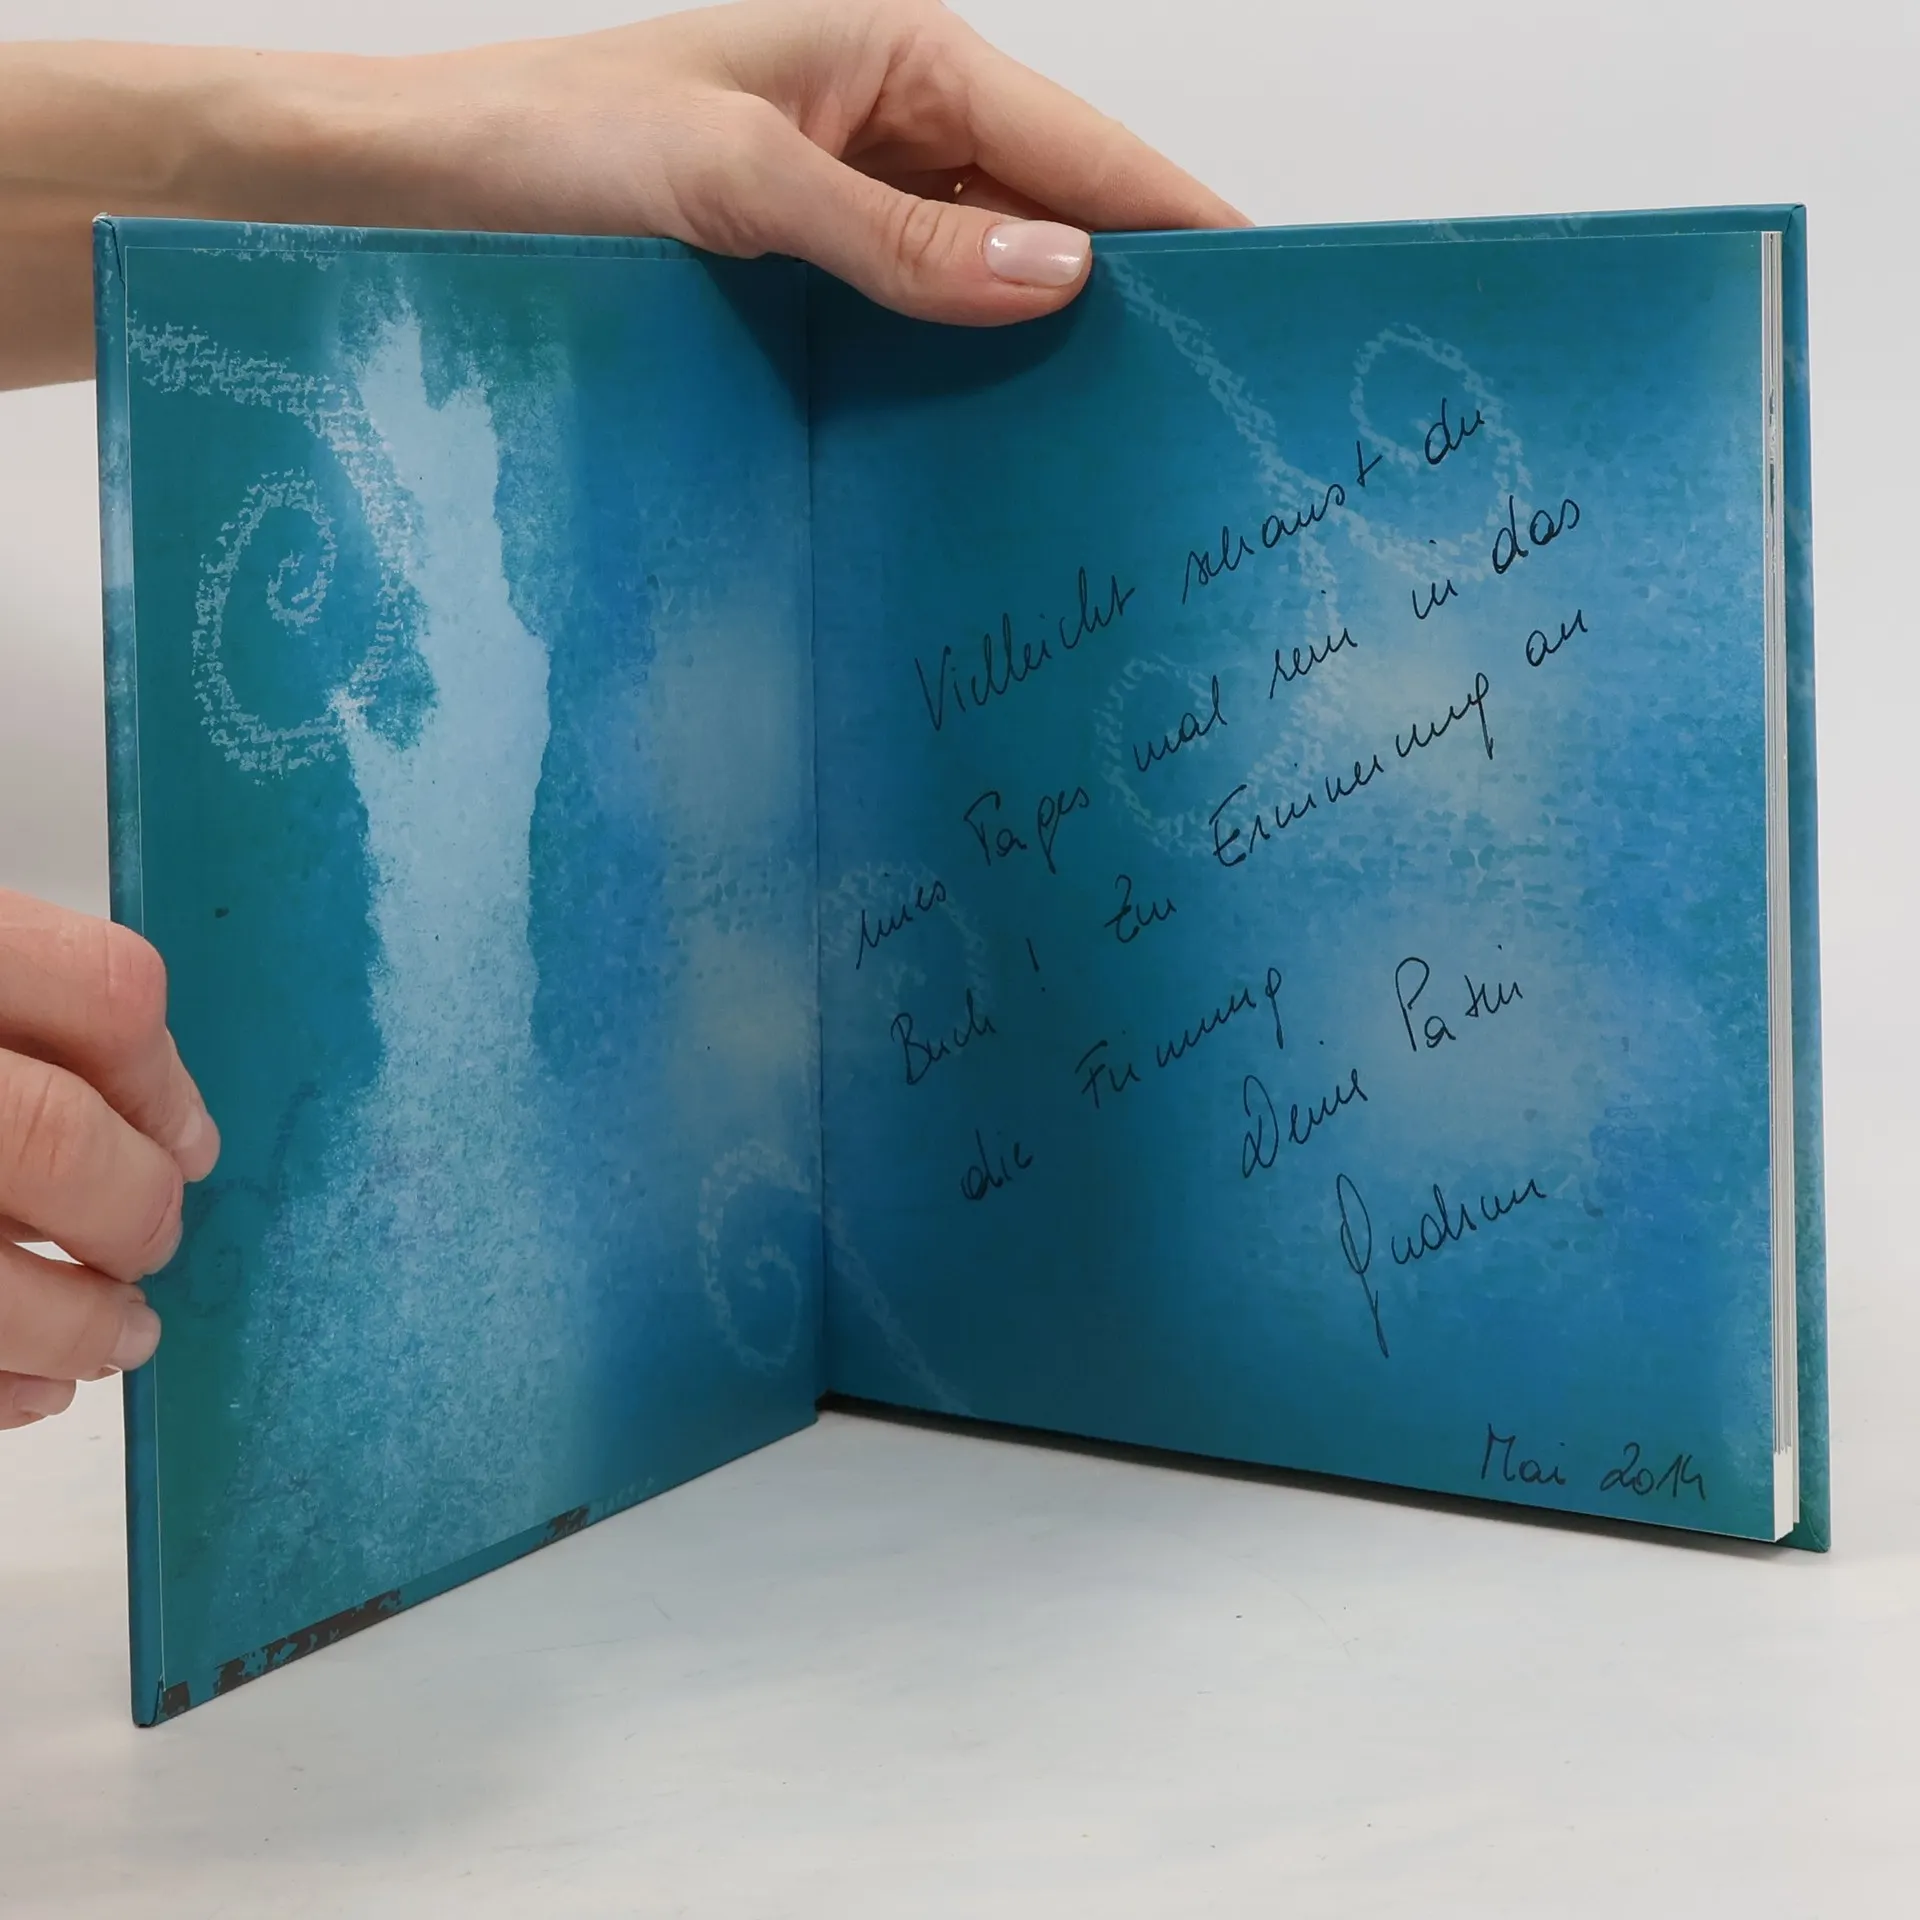 Vielleicht schaust du
eines Tages mal rein in das
Buch! Zur Erinnerung an
die Firmung
Deine Patin
Gudrun
Mai 2014